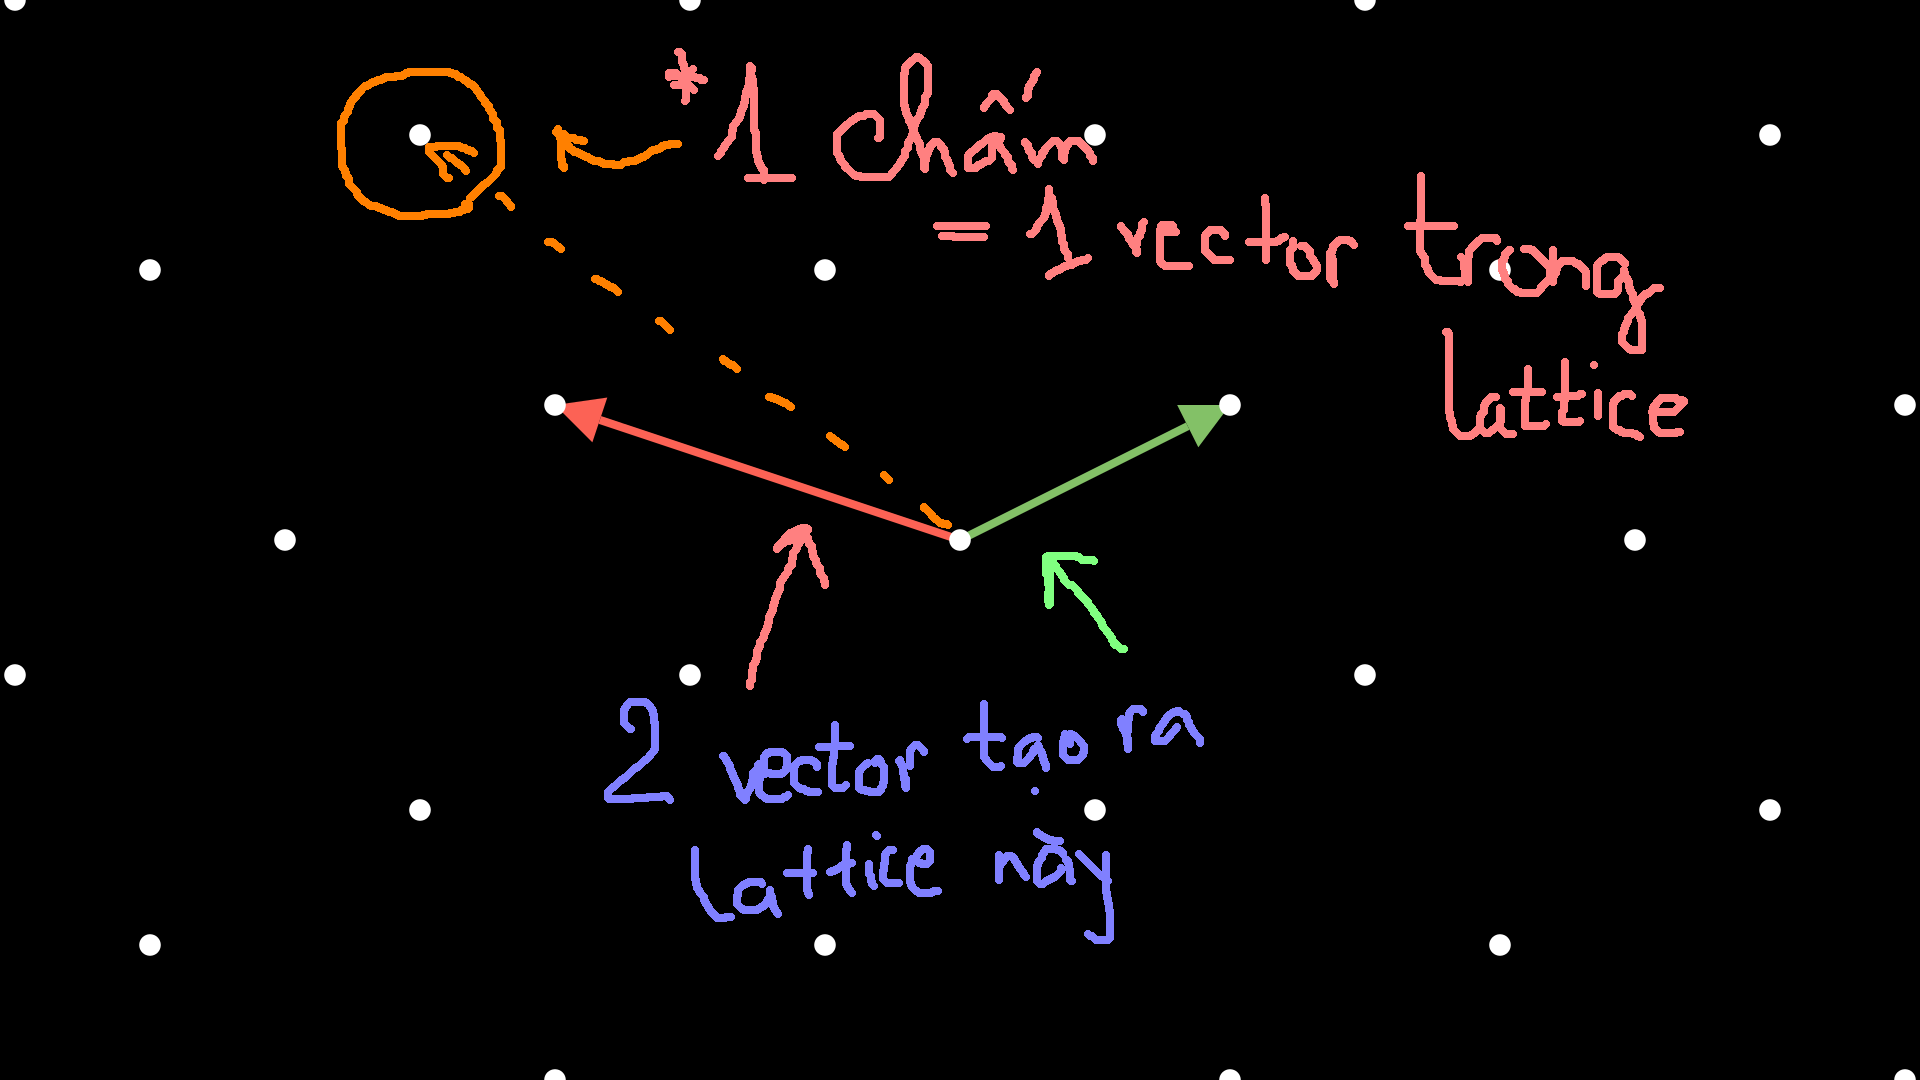 *1 chấm
= 1 vector trong
lattice
2 vector tạo ra
lattice này